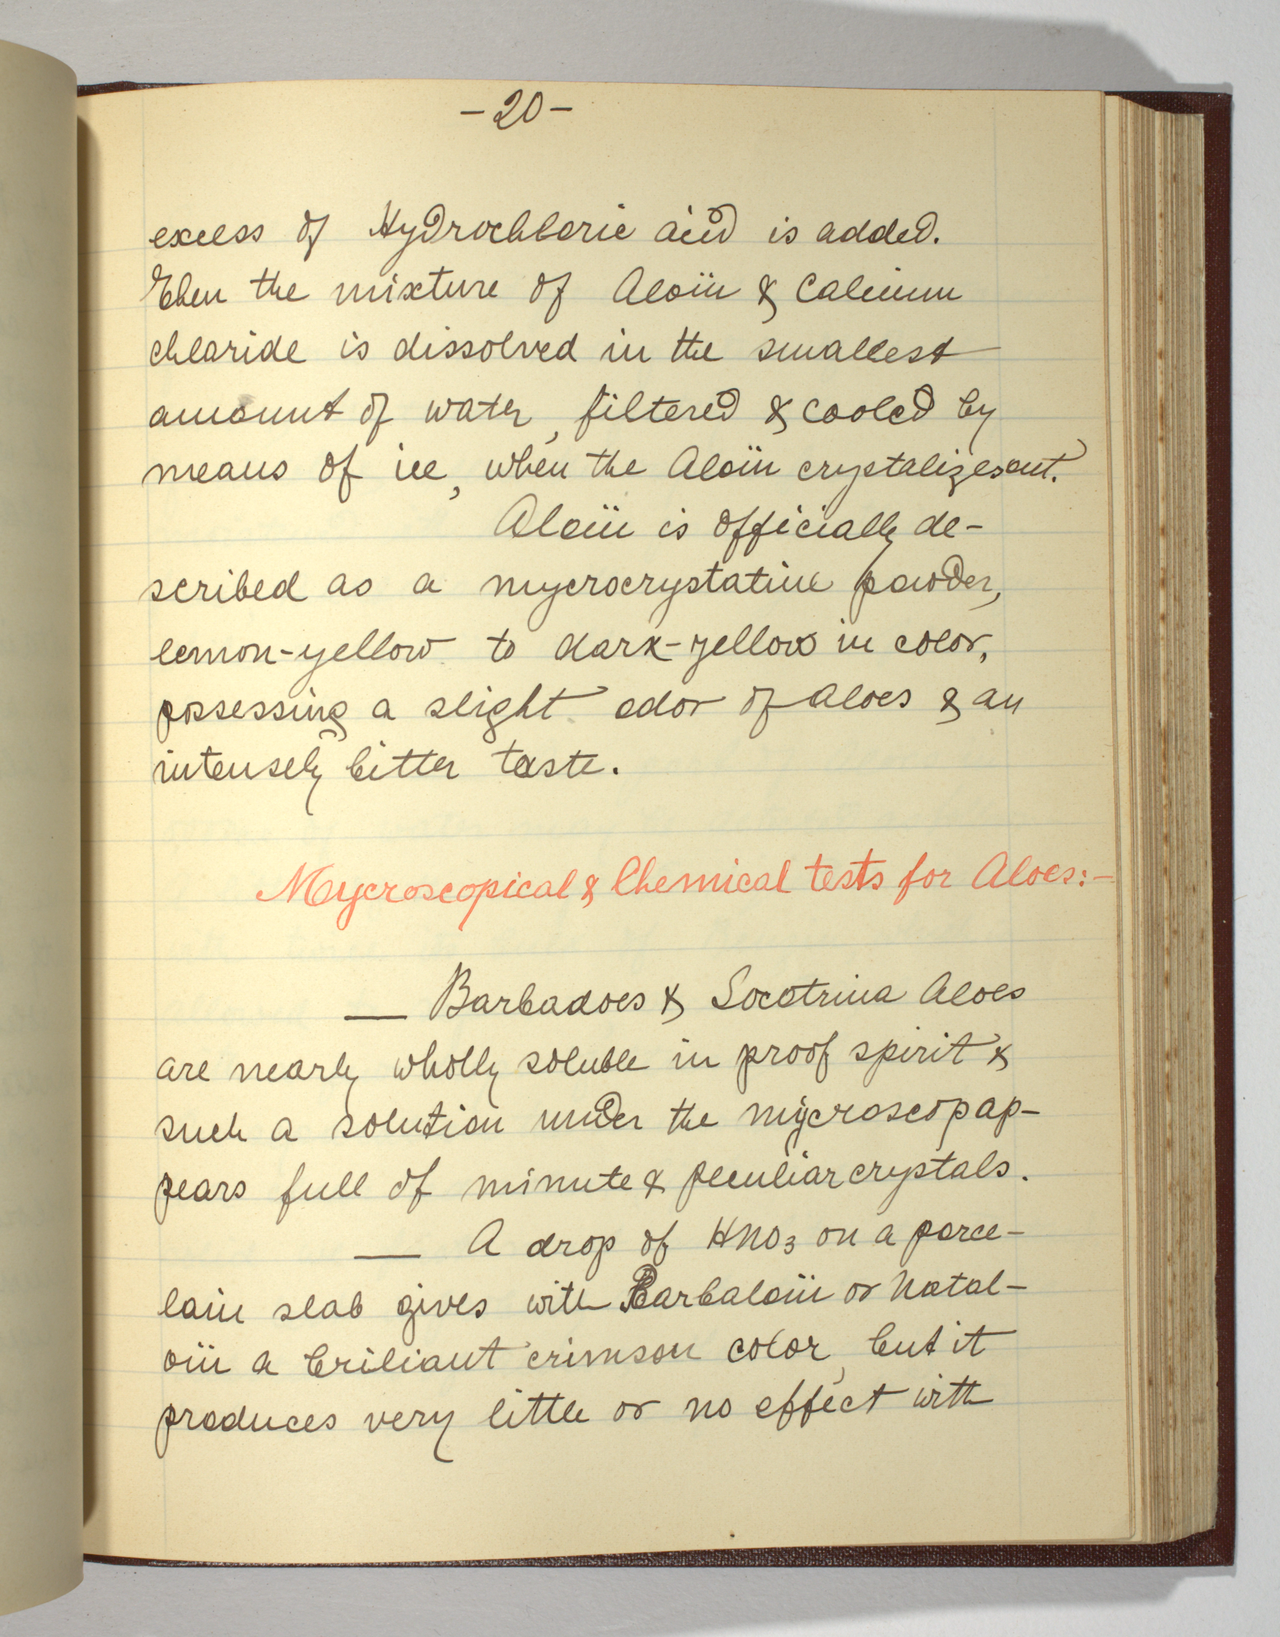 -20-
excess of Hydrochloric acid is added.
Then the mixture of Aloin & Calcium
chloride is dissolved in the smallest
amount of water, filtered & cooled by
means of ice, when the Aloin crystalizes out.
Aloin is officially de-
scribed as a mycrocrystatine powder,
lemon-yellow to dark-yellow in color,
possessing a slight odor of aloes & an
intensely bitter taste.
Mycroscopical & Chemical tests for Aloes:-
— Barbadoes & Socotrina Aloes
are nearly wholly soluble in proof spirit &
such a solution under the mycroscop ap-
pears full of minute & peculiar crystals.
— A drop of HNO3 on a porce-
lain slab gives with Barbaloin or Natal-
oin a briliant crimson color, but it
produces very little or no effect with